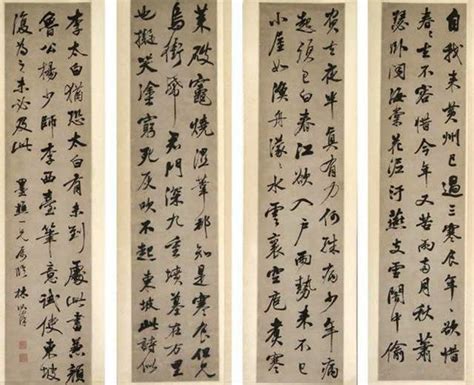 自我来黄州已過三寒食年〻欲惜
春〻去不容惜今年又苦雨兩月秋蕭
瑟卧聞海棠花泥汙燕支雪闇中偷
負去夜半真有力何殊病少年病
起頭已白春江欲入户雨勢来不已
小屋如漁舟濛〻水雲裏空庖煮寒
菜破竈燒濕葦那知是寒食但見
烏銜帋君門深九重墳墓在万里
也擬哭塗窮死灰吹不起東坡此詩似
李太白猶恐太白有未到處此書兼顔
魯公楊少師李西臺筆意試使東坡
復為之未必及此